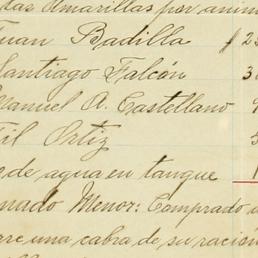 das Amarillas por anim
Juan Badilla $ 2
Santiago Falcón 3
Manuel A. Castellano
Gil Ortiz 5
de agua en tanque 1
nado Menor: Comprado
una cabra de su ració